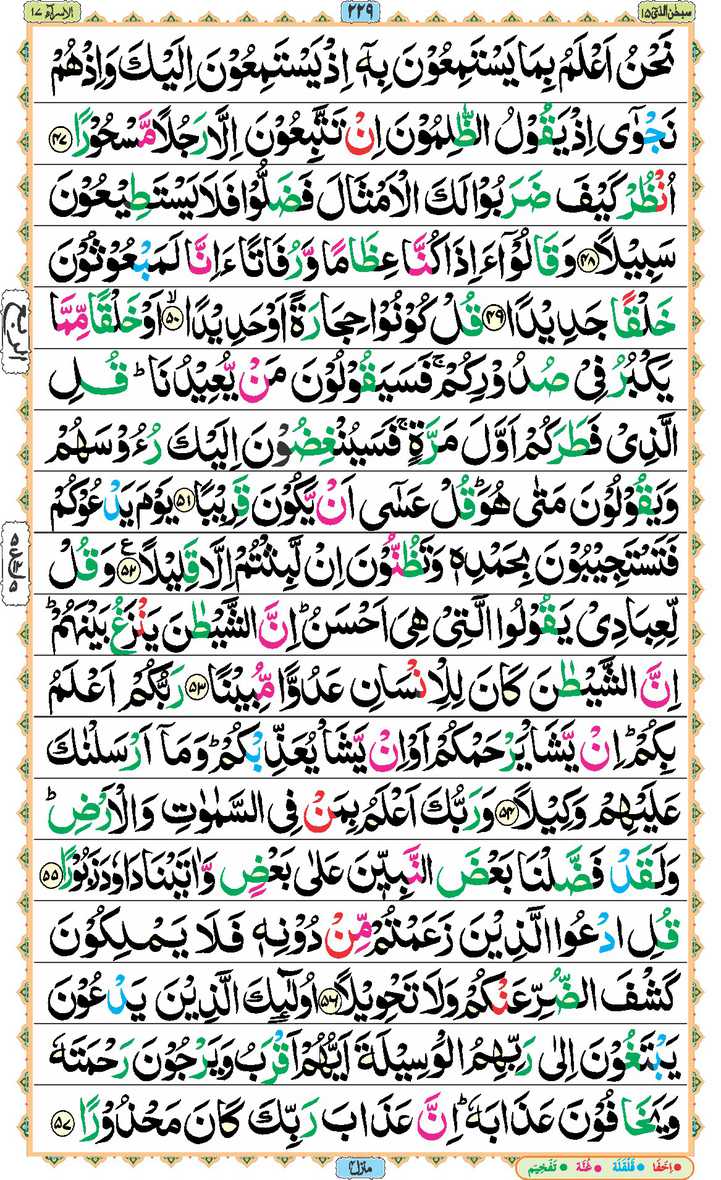 سبحٰن الذیٓ ۱۵
۲۲۹
الاسرآء ۱۷
نَحْنُ اَعْلَمُ بِمَا یَسْتَمِعُوْنَ بِهٖۤ اِذْ یَسْتَمِعُوْنَ اِلَیْكَ وَ اِذْ هُمْ
نَجْوٰۤى اِذْ یَقُوْلُ الظّٰلِمُوْنَ اِنْ تَتَّبِعُوْنَ اِلَّا رَجُلًا مَّسْحُوْرًا ۴۷
اُنْظُرْ كَیْفَ ضَرَبُوْا لَكَ الْاَمْثَالَ فَضَلُّوْا فَلَا یَسْتَطِیْعُوْنَ
سَبِیْلًا ۴۸ وَ قَالُوْۤا ءَاِذَا كُنَّا عِظَامًا وَّ رُفَاتًا ءَاِنَّا لَمَبْعُوْثُوْنَ
خَلْقًا جَدِیْدًا ۴۹ قُلْ كُوْنُوْا حِجَارَةً اَوْ حَدِیْدًا ۙ ۵۰ اَوْ خَلْقًا مِّمَّا
الربع
یَكْبُرُ فِیْ صُدُوْرِكُمْ ۚ فَسَیَقُوْلُوْنَ مَنْ یُّعِیْدُنَا ؕ قُلِ
الَّذِیْ فَطَرَكُمْ اَوَّلَ مَرَّةٍ ۚ فَسَیُنْغِضُوْنَ اِلَیْكَ رُءُوْسَهُمْ
وَ یَقُوْلُوْنَ مَتٰى هُوَ ؕ قُلْ عَسٰۤى اَنْ یَّكُوْنَ قَرِیْبًا ۵۱ یَوْمَ یَدْعُوْكُمْ
فَتَسْتَجِیْبُوْنَ بِحَمْدِهٖ وَ تَظُنُّوْنَ اِنْ لَّبِثْتُمْ اِلَّا قَلِیْلًا ۵۲ ع وَ قُلْ
لِّعِبَادِیْ یَقُوْلُوا الَّتِیْ هِیَ اَحْسَنُ ؕ اِنَّ الشَّیْطٰنَ یَنْزَغُ بَیْنَهُمْ ؕ
اِنَّ الشَّیْطٰنَ كَانَ لِلْاِنْسَانِ عَدُوًّا مُّبِیْنًا ۵۳ رَبُّكُمْ اَعْلَمُ
بِكُمْ ؕ اِنْ یَّشَاْ یَرْحَمْكُمْ اَوْ اِنْ یَّشَاْ یُعَذِّبْكُمْ ؕ وَ مَاۤ اَرْسَلْنٰكَ
عَلَیْهِمْ وَكِیْلًا ۵۴ وَ رَبُّكَ اَعْلَمُ بِمَنْ فِی السَّمٰوٰتِ وَ الْاَرْضِ ؕ
وَ لَقَدْ فَضَّلْنَا بَعْضَ النَّبِیّٖنَ عَلٰى بَعْضٍ وَّ اٰتَیْنَا دَاوٗدَ زَبُوْرًا ۵۵
قُلِ ادْعُوا الَّذِیْنَ زَعَمْتُمْ مِّنْ دُوْنِهٖ فَلَا یَمْلِكُوْنَ
كَشْفَ الضُّرِّ عَنْكُمْ وَ لَا تَحْوِیْلًا ۵۶ اُولٰٓىِٕكَ الَّذِیْنَ یَدْعُوْنَ
یَبْتَغُوْنَ اِلٰى رَبِّهِمُ الْوَسِیْلَةَ اَیُّهُمْ اَقْرَبُ وَ یَرْجُوْنَ رَحْمَتَهٗ
وَ یَخَافُوْنَ عَذَابَهٗ ؕ اِنَّ عَذَابَ رَبِّكَ كَانَ مَحْذُوْرًا ۵۷
منزل ۴
اِخْفَا قَلْقَلَة غُنَّة تَفْخِیْم